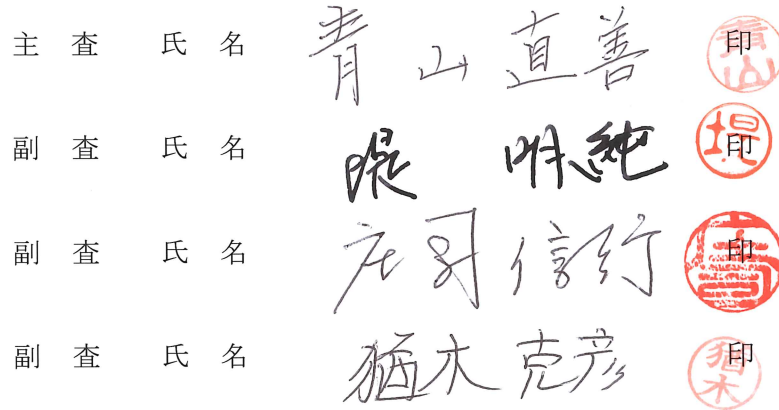 主査 氏名 青山直善 印
副査 氏名 堤 明純 印
副査 氏名 庄司信行 印
副査 氏名 猶木克彦 印